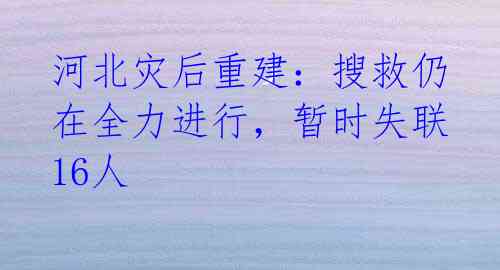 河北灾后重建：搜救仍
在全力进行，暂时失联
16人